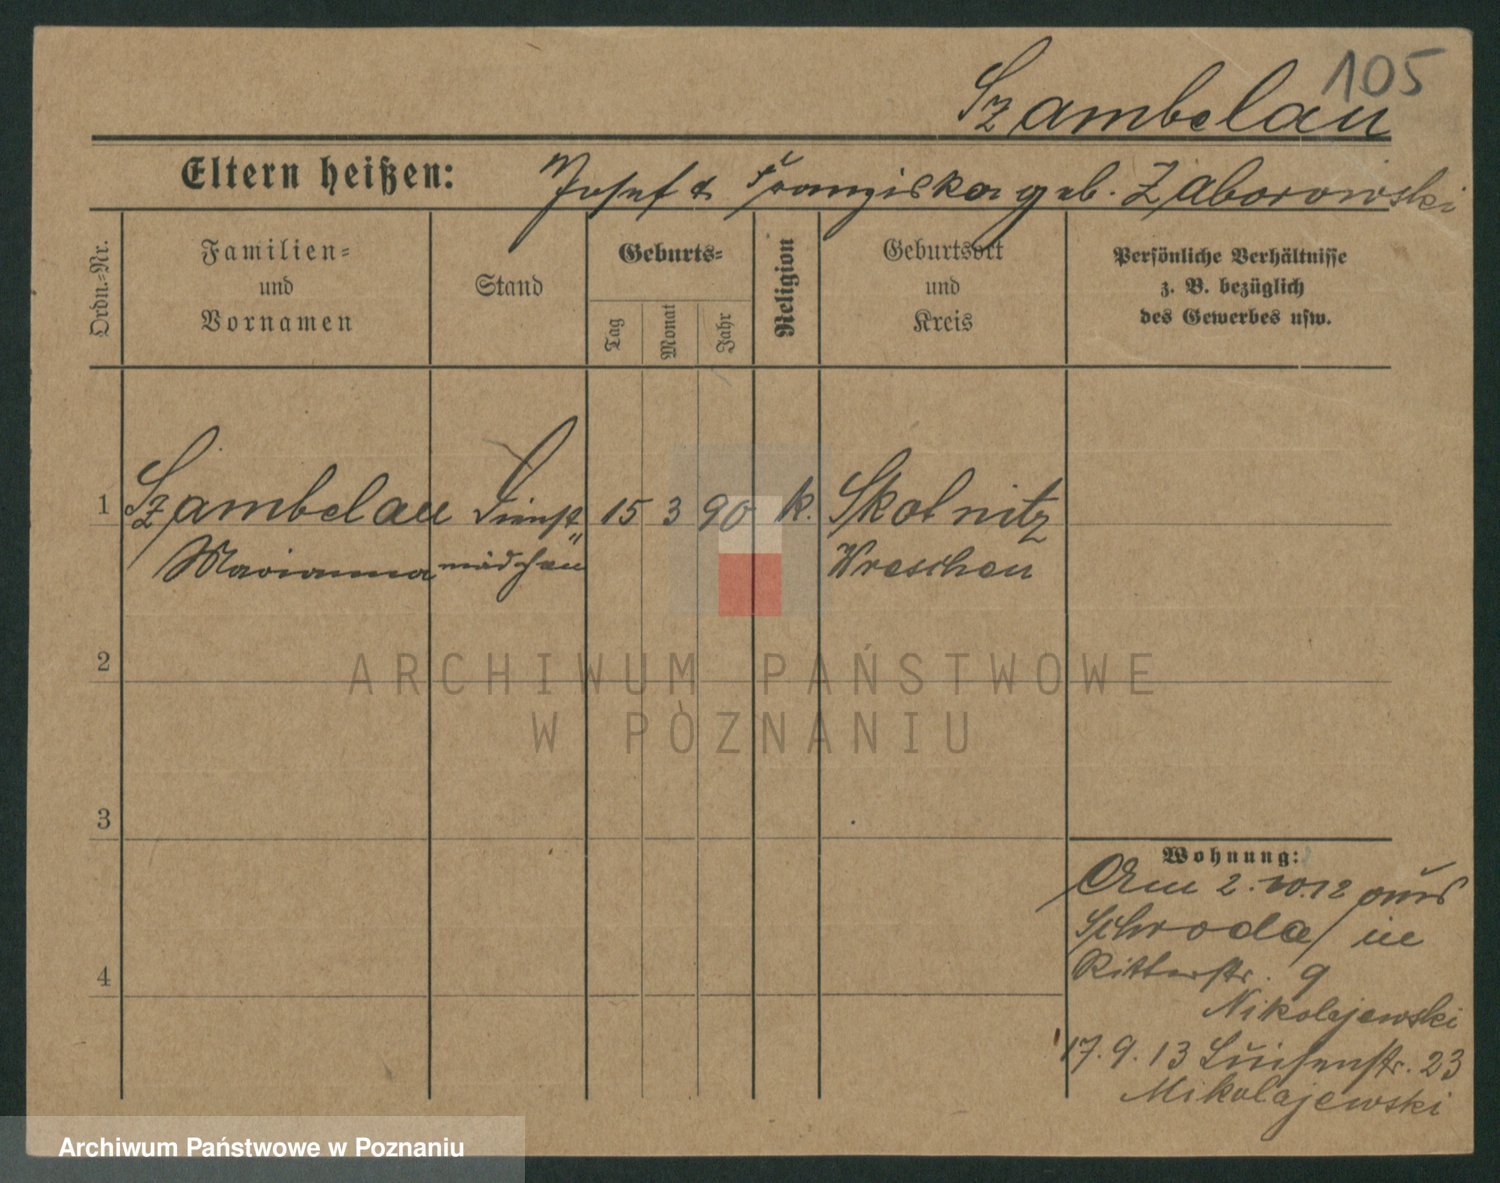 105
Szambelau
Eltern heißen: Josef & Franziska geb. Zaborowski
Ordn.-Nr.
Familien-
und
Vornamen
Stand
Geburts-
Tag
Monat
Jahr
Religion
Geburtsort
und
Kreis
Persönliche Verhältnisse
z. B. bezüglich
des Gewerbes usw.
1 Szambelau Dienst 15 3 90 k. Skotnitz
Marianna mädchen Wreschen
2
ARCHIWUM PAŃSTWOWE
W POZNANIU
3
Wohnung:
Am 2.10.12 aus
Schroda / in
4
Ritterstr. 9
Nikolajewski
17.9.13 Luisenstr. 23
Mikolajewski
Archiwum Państwowe w Poznaniu